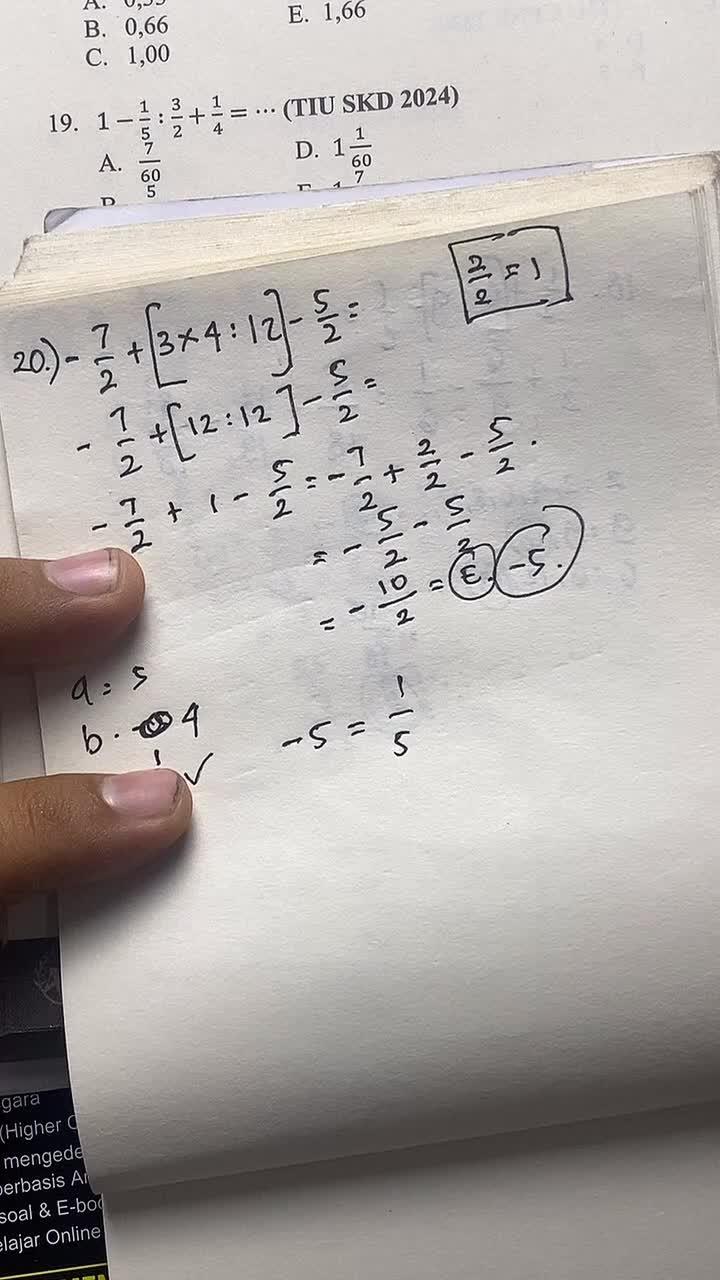 B. 0,66
E. 1,66
C. 1,00
19. 1 − 1/5 : 3/2 + 1/4 = ... (TIU SKD 2024)
A. 7/60
D. 1 1/60
2/2 = 1
20.) - 7/2 + [3 × 4 : 12] - 5/2 =
- 7/2 + [12 : 12] - 5/2 =
- 7/2 + 1 - 5/2 = - 7/2 + 2/2 - 5/2.
= - 5/2 - 5/2
= - 10/2 = E. -5.
a = 5
b. 4
-5 = 1/5
gara
(Higher
mengede
berbasis
soal & E-boo
elajar Online